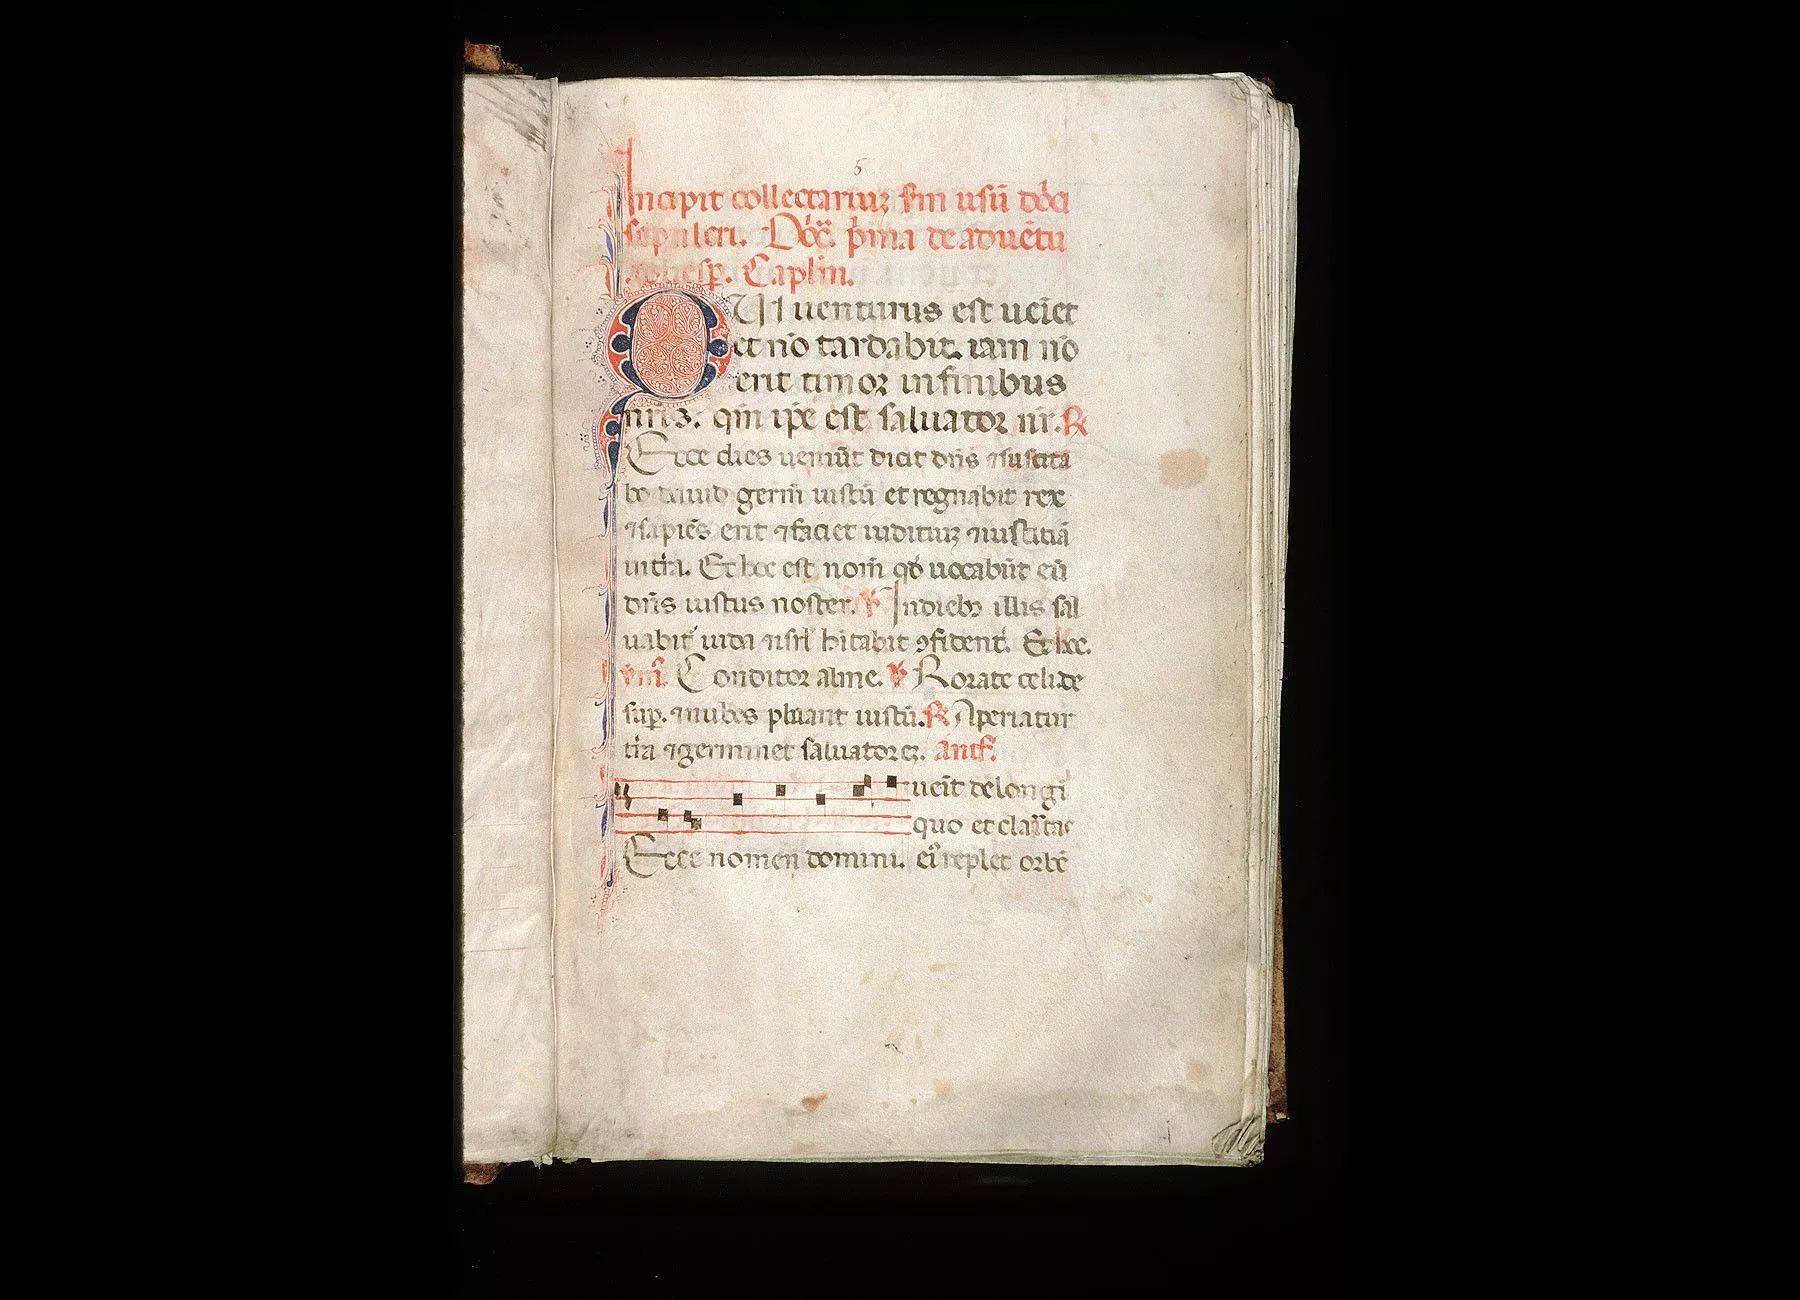 Incipit collectariuz scḋm usū dn̄ci
sepulcri. Dn̄ica p̄ma de aduētu
ad uesp̄. Caplm̄.
QUi uenturus est ueīet
et nō tardabit. iam nō
erit timor in finibus
nr̄is. qm̄ ip̄e est saluator nr̄. ℟
Ecce dies ueniūt dicit dn̄s ⁊ suscita
bo dauid germ̄ iustū et regnabit rex
⁊ sapiēs erit ⁊ faciet iudiciuz ⁊ iusticiā
in tr̄a. Et hoc est nom̄ qḋ uocabūt eū
dn̄s iustus noster. ℣ In diebꝫ illis sal
uabit᷑ iuda ⁊ isrl̄ hītabit ꝯfident᷑. Et hoc.
ym̄. Conditor alme. ℣ Rorate celi de
sup̄. ⁊ nubes pluant iustū. ℟ Aperiatur
tr̄a ⁊ germinet saluatorez. Ant̄.
ueīt de longi
quo et clar̄tas
Ecce nomen domini. eiꝰ replet orbē